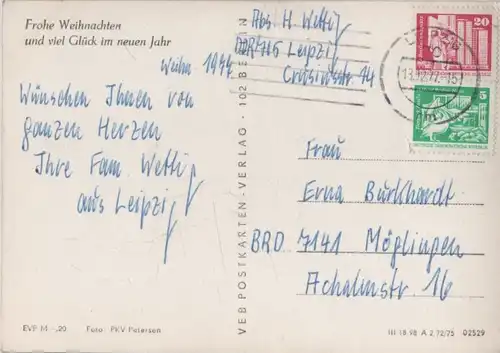 Frohe Weihnachten
und viel Glück im neuen Jahr
Weihn 1977
Wünschen Ihnen von
ganzen Herzen
Ihre Fam Wettig
aus Leipzig
EVP M –,20 Foto: PKV Petersen
VEB POSTKARTEN-VERLAG · 102 BERLIN
Abs. H. Wettig
DDR 716 Leipzig
14
20
5
LEIPZIG
13.12.77.-15
DEUTSCHE DEMOKRATISCHE REPUBLIK
Frau
Erna Burkhardt
BRD 7141 Möglingen
Achalmstr. 16
III 18 98 A 2 72/75 02529